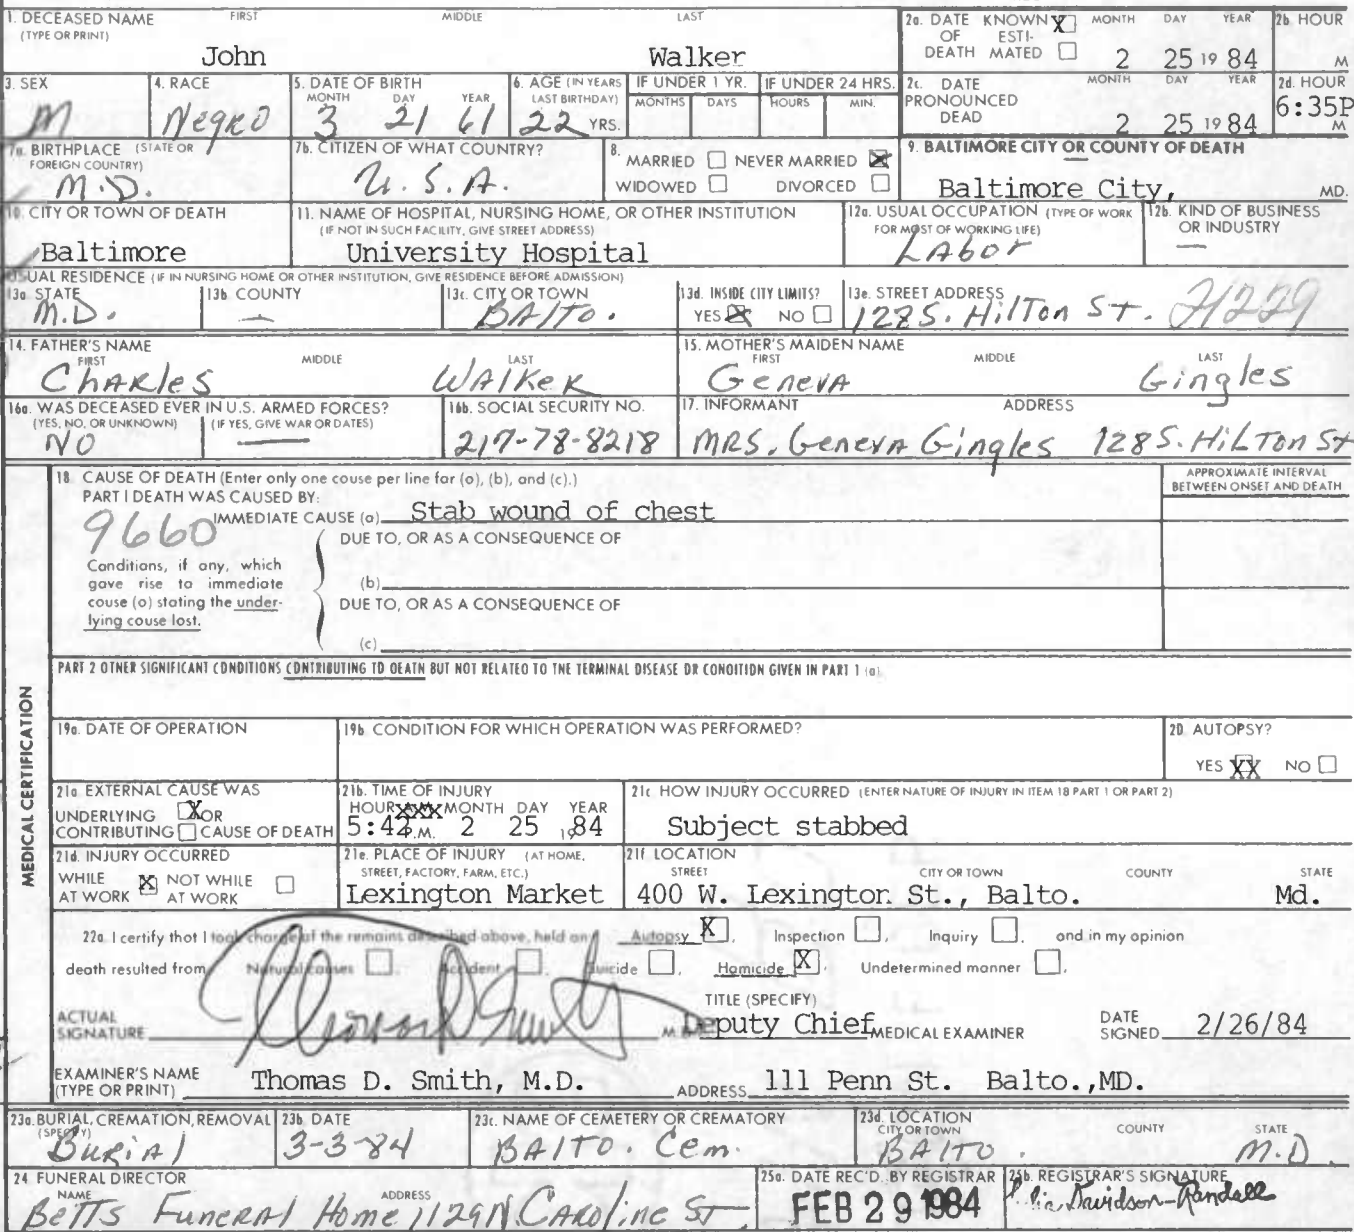 1. DECEASED NAME FIRST MIDDLE LAST
(TYPE OR PRINT)
John Walker
2a. DATE KNOWN X MONTH DAY YEAR
OF ESTI-
DEATH MATED 2 25 19 84
2b. HOUR
M
3. SEX
M
4. RACE
Negro
5. DATE OF BIRTH
MONTH DAY YEAR
3 21 61
6. AGE (IN YEARS
LAST BIRTHDAY)
22 YRS.
IF UNDER 1 YR.
MONTHS DAYS
IF UNDER 24 HRS.
HOURS MIN.
2c. DATE MONTH DAY YEAR
PRONOUNCED
DEAD 2 25 19 84
2d. HOUR
6:35P
M
7a. BIRTHPLACE (STATE OR
FOREIGN COUNTRY)
M.D.
7b. CITIZEN OF WHAT COUNTRY?
U.S.A.
8.
MARRIED NEVER MARRIED X
WIDOWED DIVORCED
9. BALTIMORE CITY OR COUNTY OF DEATH
Baltimore City, MD.
10. CITY OR TOWN OF DEATH
Baltimore
11. NAME OF HOSPITAL, NURSING HOME, OR OTHER INSTITUTION
(IF NOT IN SUCH FACILITY, GIVE STREET ADDRESS)
University Hospital
12a. USUAL OCCUPATION (TYPE OF WORK
FOR MOST OF WORKING LIFE)
Labor
12b. KIND OF BUSINESS
OR INDUSTRY
—
USUAL RESIDENCE (IF IN NURSING HOME OR OTHER INSTITUTION, GIVE RESIDENCE BEFORE ADMISSION)
13a. STATE
M.D.
13b. COUNTY
—
13c. CITY OR TOWN
BAlTo.
13d. INSIDE CITY LIMITS?
YES X NO
13e. STREET ADDRESS
128 S. Hilton St. 21229
14. FATHER'S NAME
FIRST MIDDLE LAST
Charles Walker
15. MOTHER'S MAIDEN NAME
FIRST MIDDLE LAST
Geneva Gingles
16a. WAS DECEASED EVER IN U.S. ARMED FORCES?
(YES, NO, OR UNKNOWN) (IF YES, GIVE WAR OR DATES)
NO —
16b. SOCIAL SECURITY NO.
217-78-8218
17. INFORMANT ADDRESS
MRS. Geneva Gingles 128 S. Hilton St
MEDICAL CERTIFICATION
18. CAUSE OF DEATH (Enter only one couse per line for (o), (b), and (c).)
PART I DEATH WAS CAUSED BY:
9660
IMMEDIATE CAUSE (a) Stab wound of chest
APPROXIMATE INTERVAL
BETWEEN ONSET AND DEATH
DUE TO, OR AS A CONSEQUENCE OF
Conditions, if any, which
gave rise to immediate
couse (o) stating the under-
lying couse lost.
(b)
DUE TO, OR AS A CONSEQUENCE OF
(c)
PART 2 OTHER SIGNIFICANT CONDITIONS CONTRIBUTING TO DEATH BUT NOT RELATED TO THE TERMINAL DISEASE OR CONDITION GIVEN IN PART 1 (a)
19a. DATE OF OPERATION
19b. CONDITION FOR WHICH OPERATION WAS PERFORMED?
20 AUTOPSY?
YES XX NO
21a EXTERNAL CAUSE WAS
UNDERLYING X OR
CONTRIBUTING CAUSE OF DEATH
21b. TIME OF INJURY
HOUR XXX MONTH DAY YEAR
5:42 P.M. 2 25 19 84
21c HOW INJURY OCCURRED (ENTER NATURE OF INJURY IN ITEM 18 PART 1 OR PART 2)
Subject stabbed
21d. INJURY OCCURRED
WHILE X NOT WHILE
AT WORK AT WORK
21e. PLACE OF INJURY (AT HOME,
STREET, FACTORY, FARM, ETC.)
Lexington Market
21f. LOCATION
STREET CITY OR TOWN COUNTY STATE
400 W. Lexington St., Balto. Md.
22a. I certify that I took charge of the remains described above, held an Autopsy X, Inspection, Inquiry, and in my opinion
death resulted from Natural causes, Accident, Suicide, Homicide X, Undetermined manner.
ACTUAL
SIGNATURE
M.D.
TITLE (SPECIFY)
Deputy Chief MEDICAL EXAMINER
DATE
SIGNED 2/26/84
EXAMINER'S NAME
(TYPE OR PRINT) Thomas D. Smith, M.D. ADDRESS 111 Penn St. Balto.,MD.
23a. BURIAL, CREMATION, REMOVAL
(SPECIFY)
Burial
23b. DATE
3-3-84
23c. NAME OF CEMETERY OR CREMATORY
BAlTO. Cem.
23d. LOCATION
CITY OR TOWN COUNTY STATE
BAlTO. M.D.
24 FUNERAL DIRECTOR
NAME ADDRESS
Betts Funeral Home 1129 N Caroline St
25a. DATE REC'D. BY REGISTRAR
FEB 29 1984
25b. REGISTRAR'S SIGNATURE
Davidson-Randall